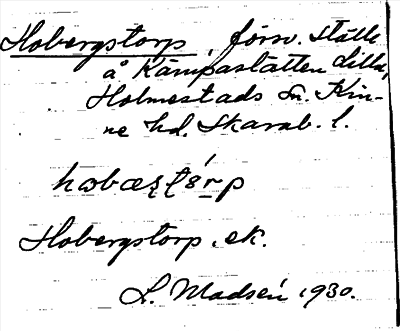 Hobergstorp, försv. ställe
å Kämpastatten Lilla,
Holmestads sn. Kin-
ne hd. Skarab. l.
Hobergstorp. ek.
L. Madsén 1930.